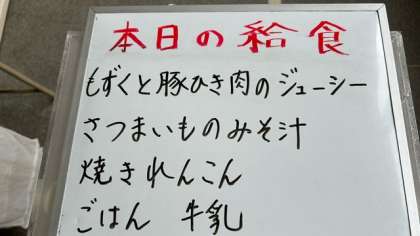 本日の給食
もずくと豚ひき肉のジューシー
さつまいものみそ汁
焼きれんこん
ごはん 牛乳